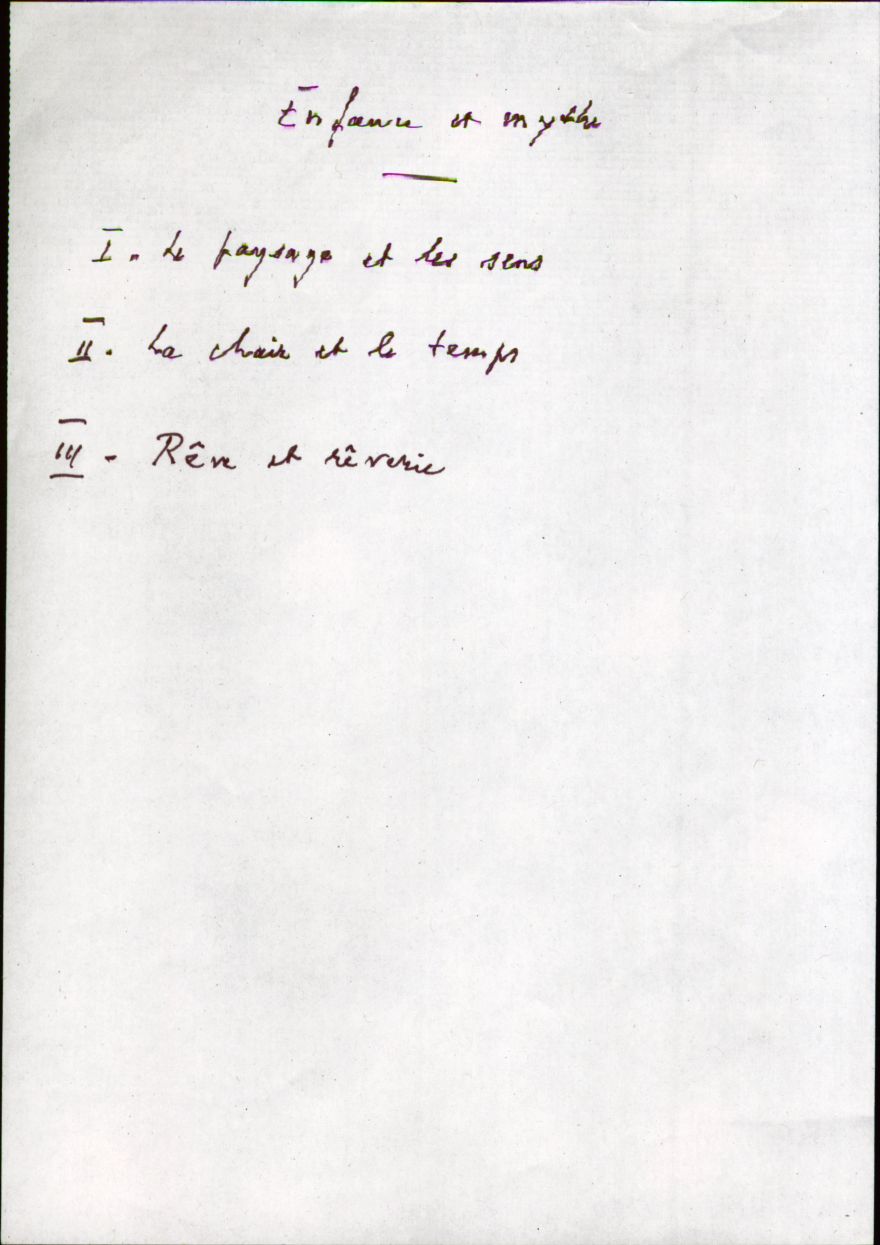 Enfance et mythe
I. Le paysage et les sens
II. La chair et le temps
III - Rêve et rêverie